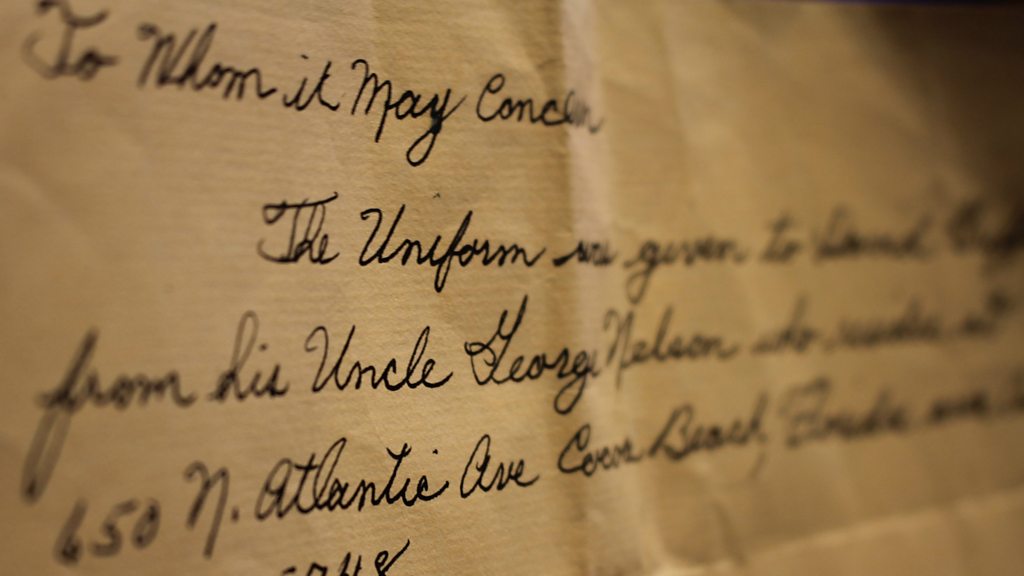 To Whom it May Concern
The Uniform given to
from his Uncle George Nelson who resides at
650 N. Atlantic Ave Cocoa Beach, Florida